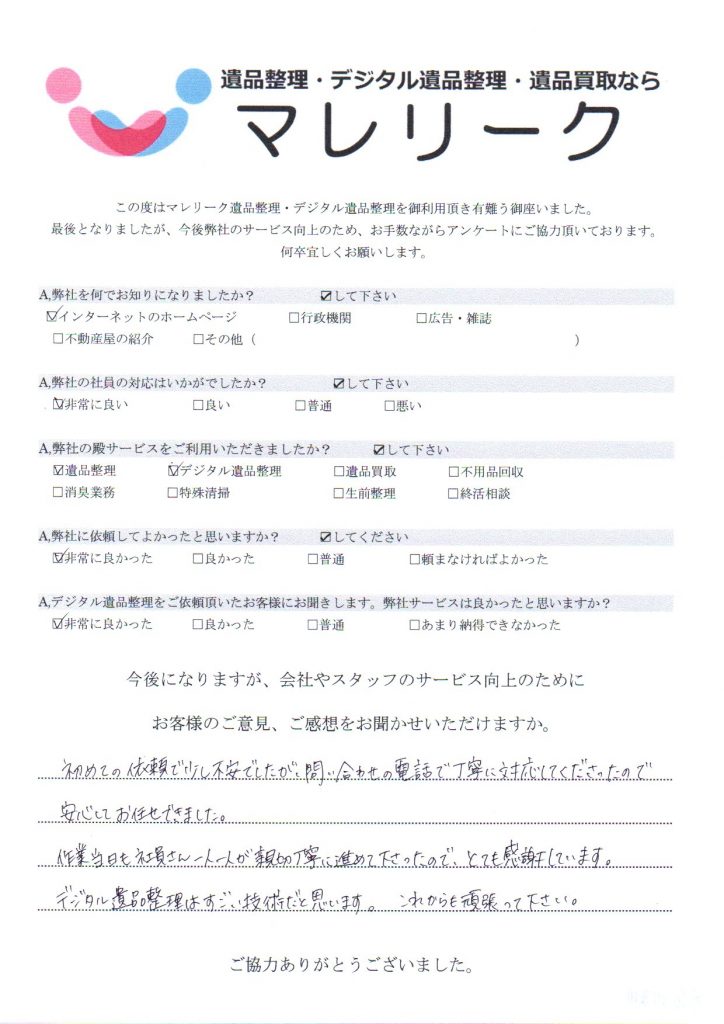 遺品整理・デジタル遺品整理・遺品買取なら
マレリーク
この度はマレリーク遺品整理・デジタル遺品整理を御利用頂き有難う御座いました。
最後となりましたが、今後弊社のサービス向上のため、お手数ながらアンケートにご協力頂いております。
何卒宜しくお願いします。
A,弊社を何でお知りになりましたか？ ☑して下さい
☑インターネットのホームページ □行政機関 □広告・雑誌
□不動産屋の紹介 □その他（ ）
A,弊社の社員の対応はいかがでしたか？ ☑して下さい
☑非常に良い □良い □普通 □悪い
A,弊社の殿サービスをご利用いただきましたか？ ☑して下さい
☑遺品整理 ☑デジタル遺品整理 □遺品買取 □不用品回収
□消臭業務 □特殊清掃 □生前整理 □終活相談
A,弊社に依頼してよかったと思いますか？ ☑してください
☑非常に良かった □良かった □普通 □頼まなければよかった
A,デジタル遺品整理をご依頼頂いたお客様にお聞きします。弊社サービスは良かったと思いますか？
☑非常に良かった □良かった □普通 □あまり納得できなかった
今後になりますが、会社やスタッフのサービス向上のために
お客様のご意見、ご感想をお聞かせいただけますか。
初めての依頼で少し不安でしたが、問い合わせの電話で丁寧に対応してくださったので
安心してお任せできました。
作業当日も社員さん一人一人が親切丁寧に進めて下さったので、とても感謝しています。
デジタル遺品整理はすごい技術だと思います。 これからも頑張って下さい。
ご協力ありがとうございました。